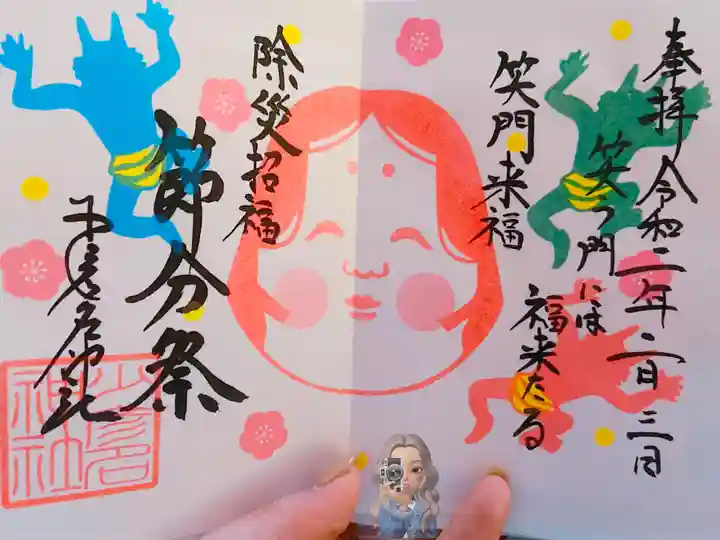 奉拝 令和二年二月三日
笑う門には
福来たる
笑門来福
除災招福
節分祭